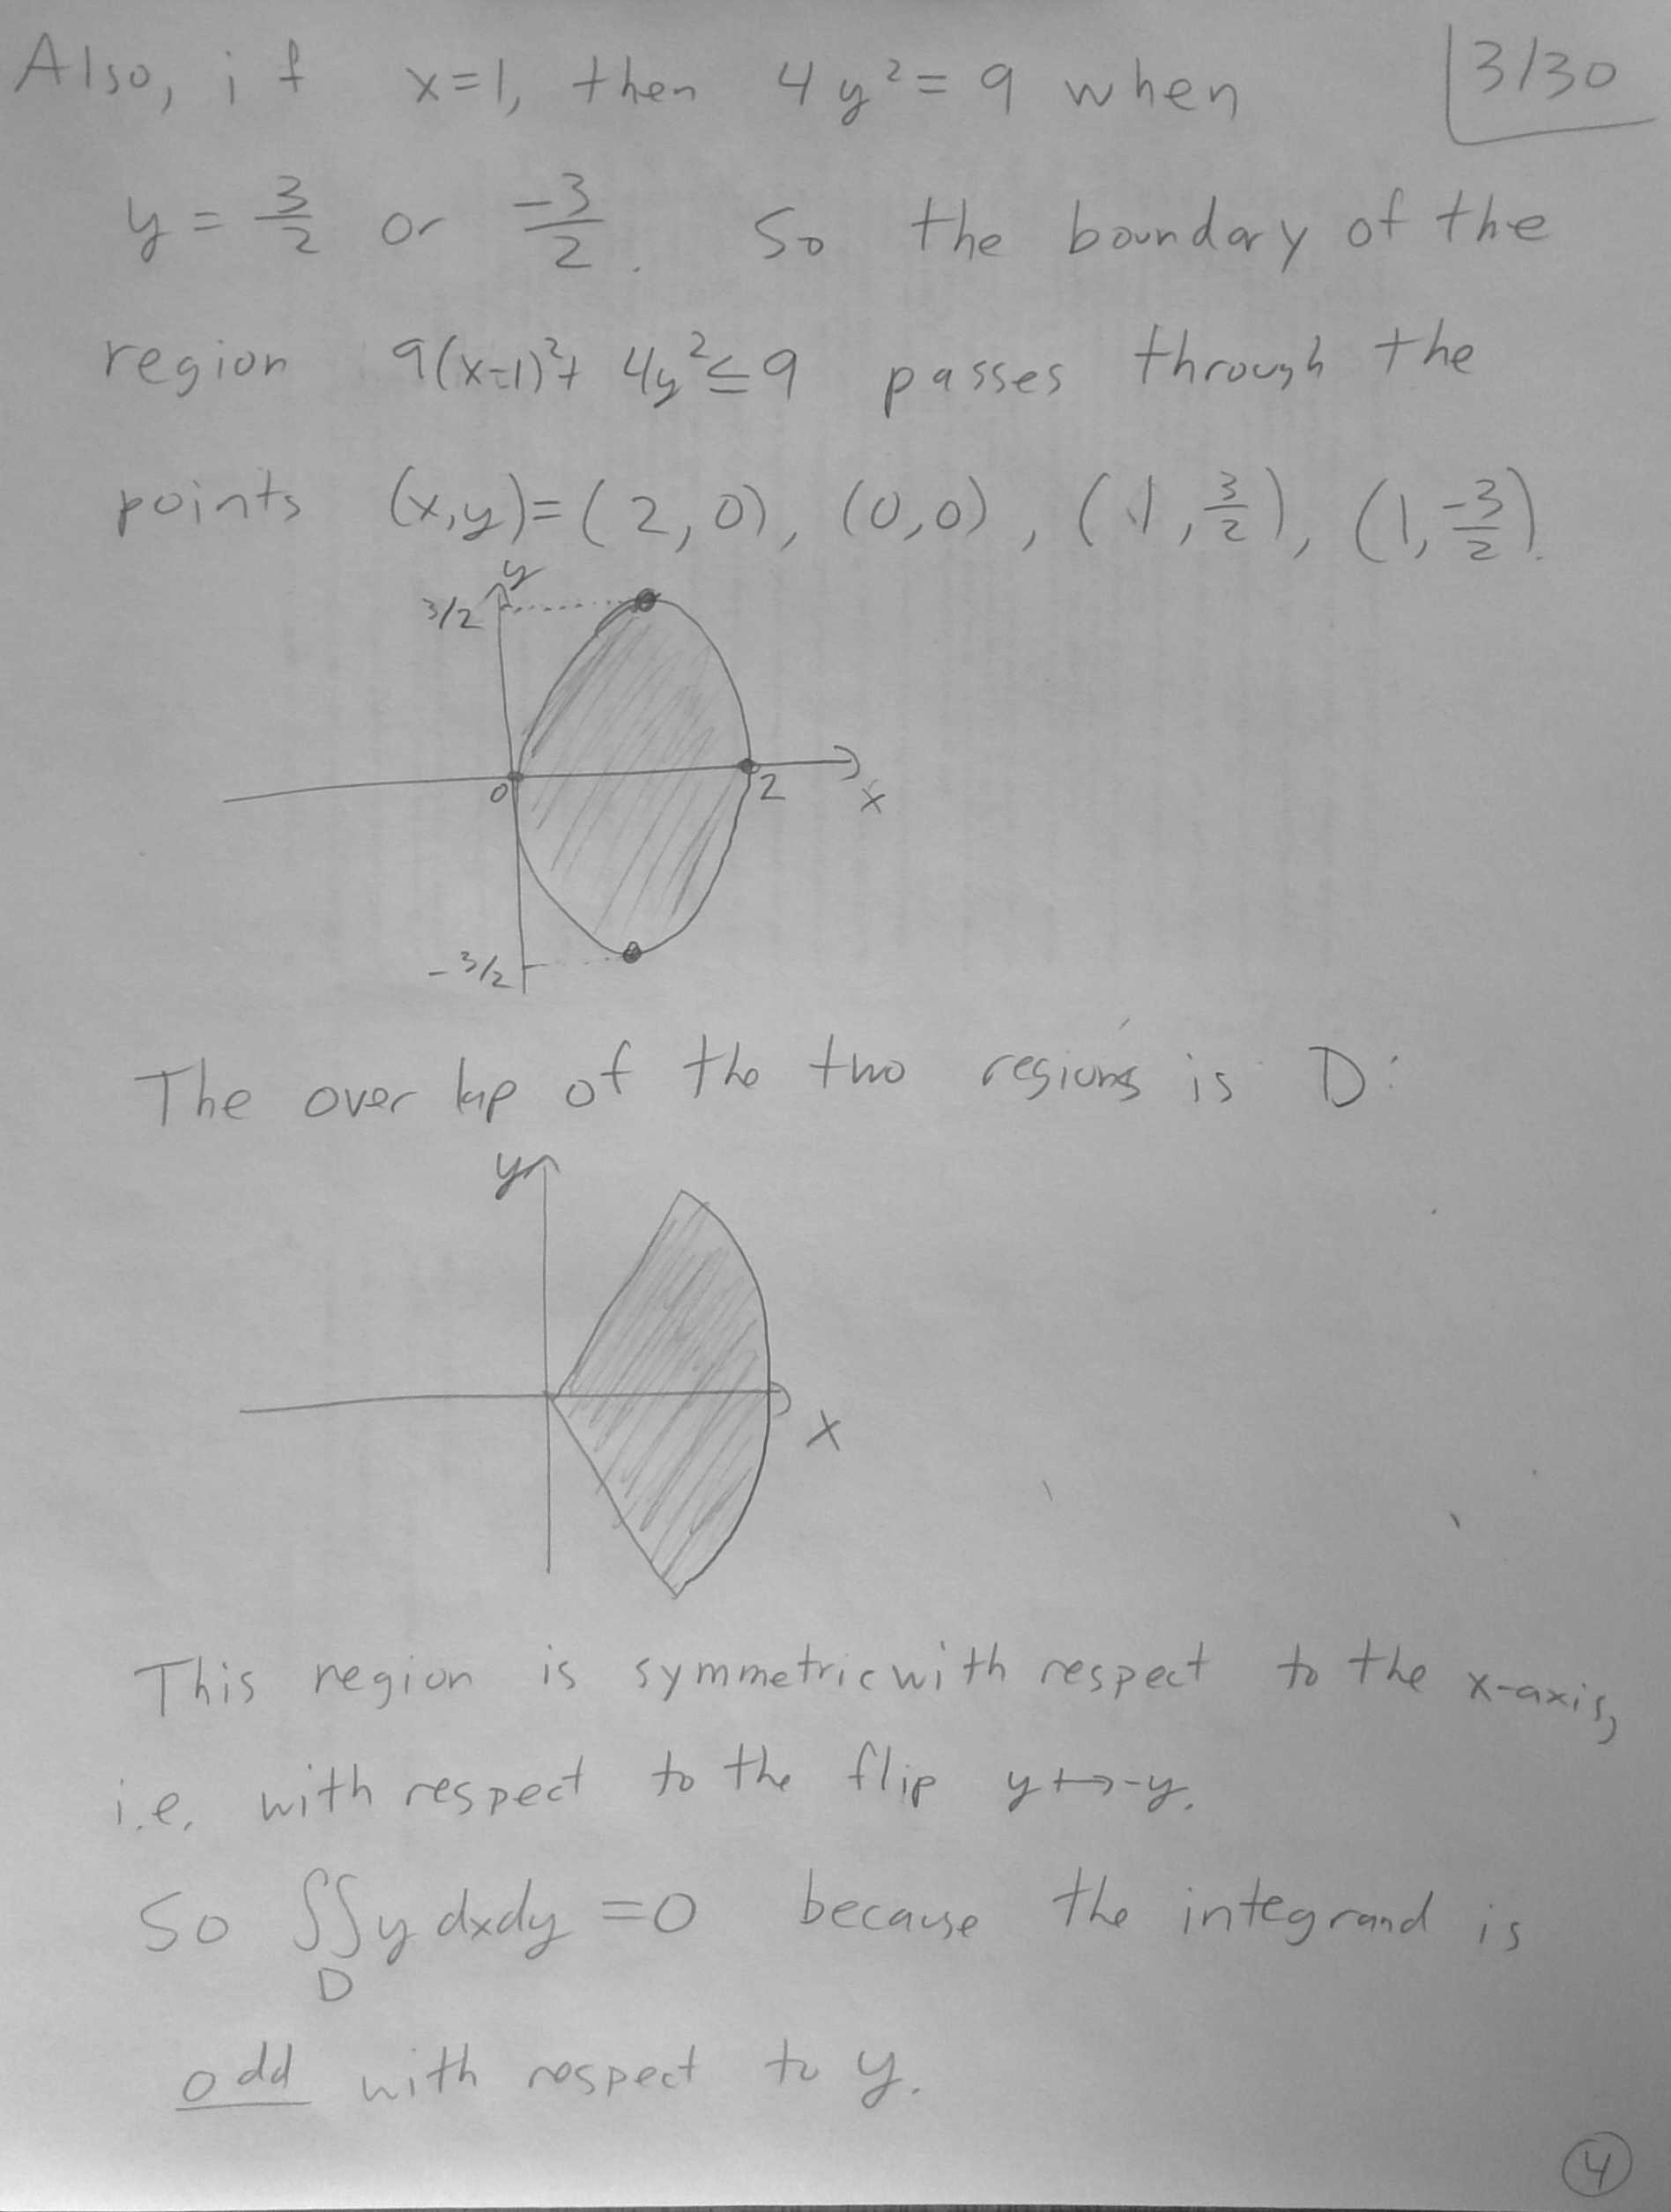 Also, if x=1, then 4y²=9 when
3/30
y = 3/2 or -3/2. So the boundary of the
region 9(x-1)²+ 4y²≤9 passes through the
points (x,y)=(2,0), (0,0), (1,3/2), (1,-3/2).
y
3/2
0
2
x
-3/2
The overlap of the two regions is D:
y
x
This region is symmetric with respect to the x-axis,
i.e. with respect to the flip y↦-y.
So ∬_D y dxdy =0 because the integrand is
odd with respect to y.
4